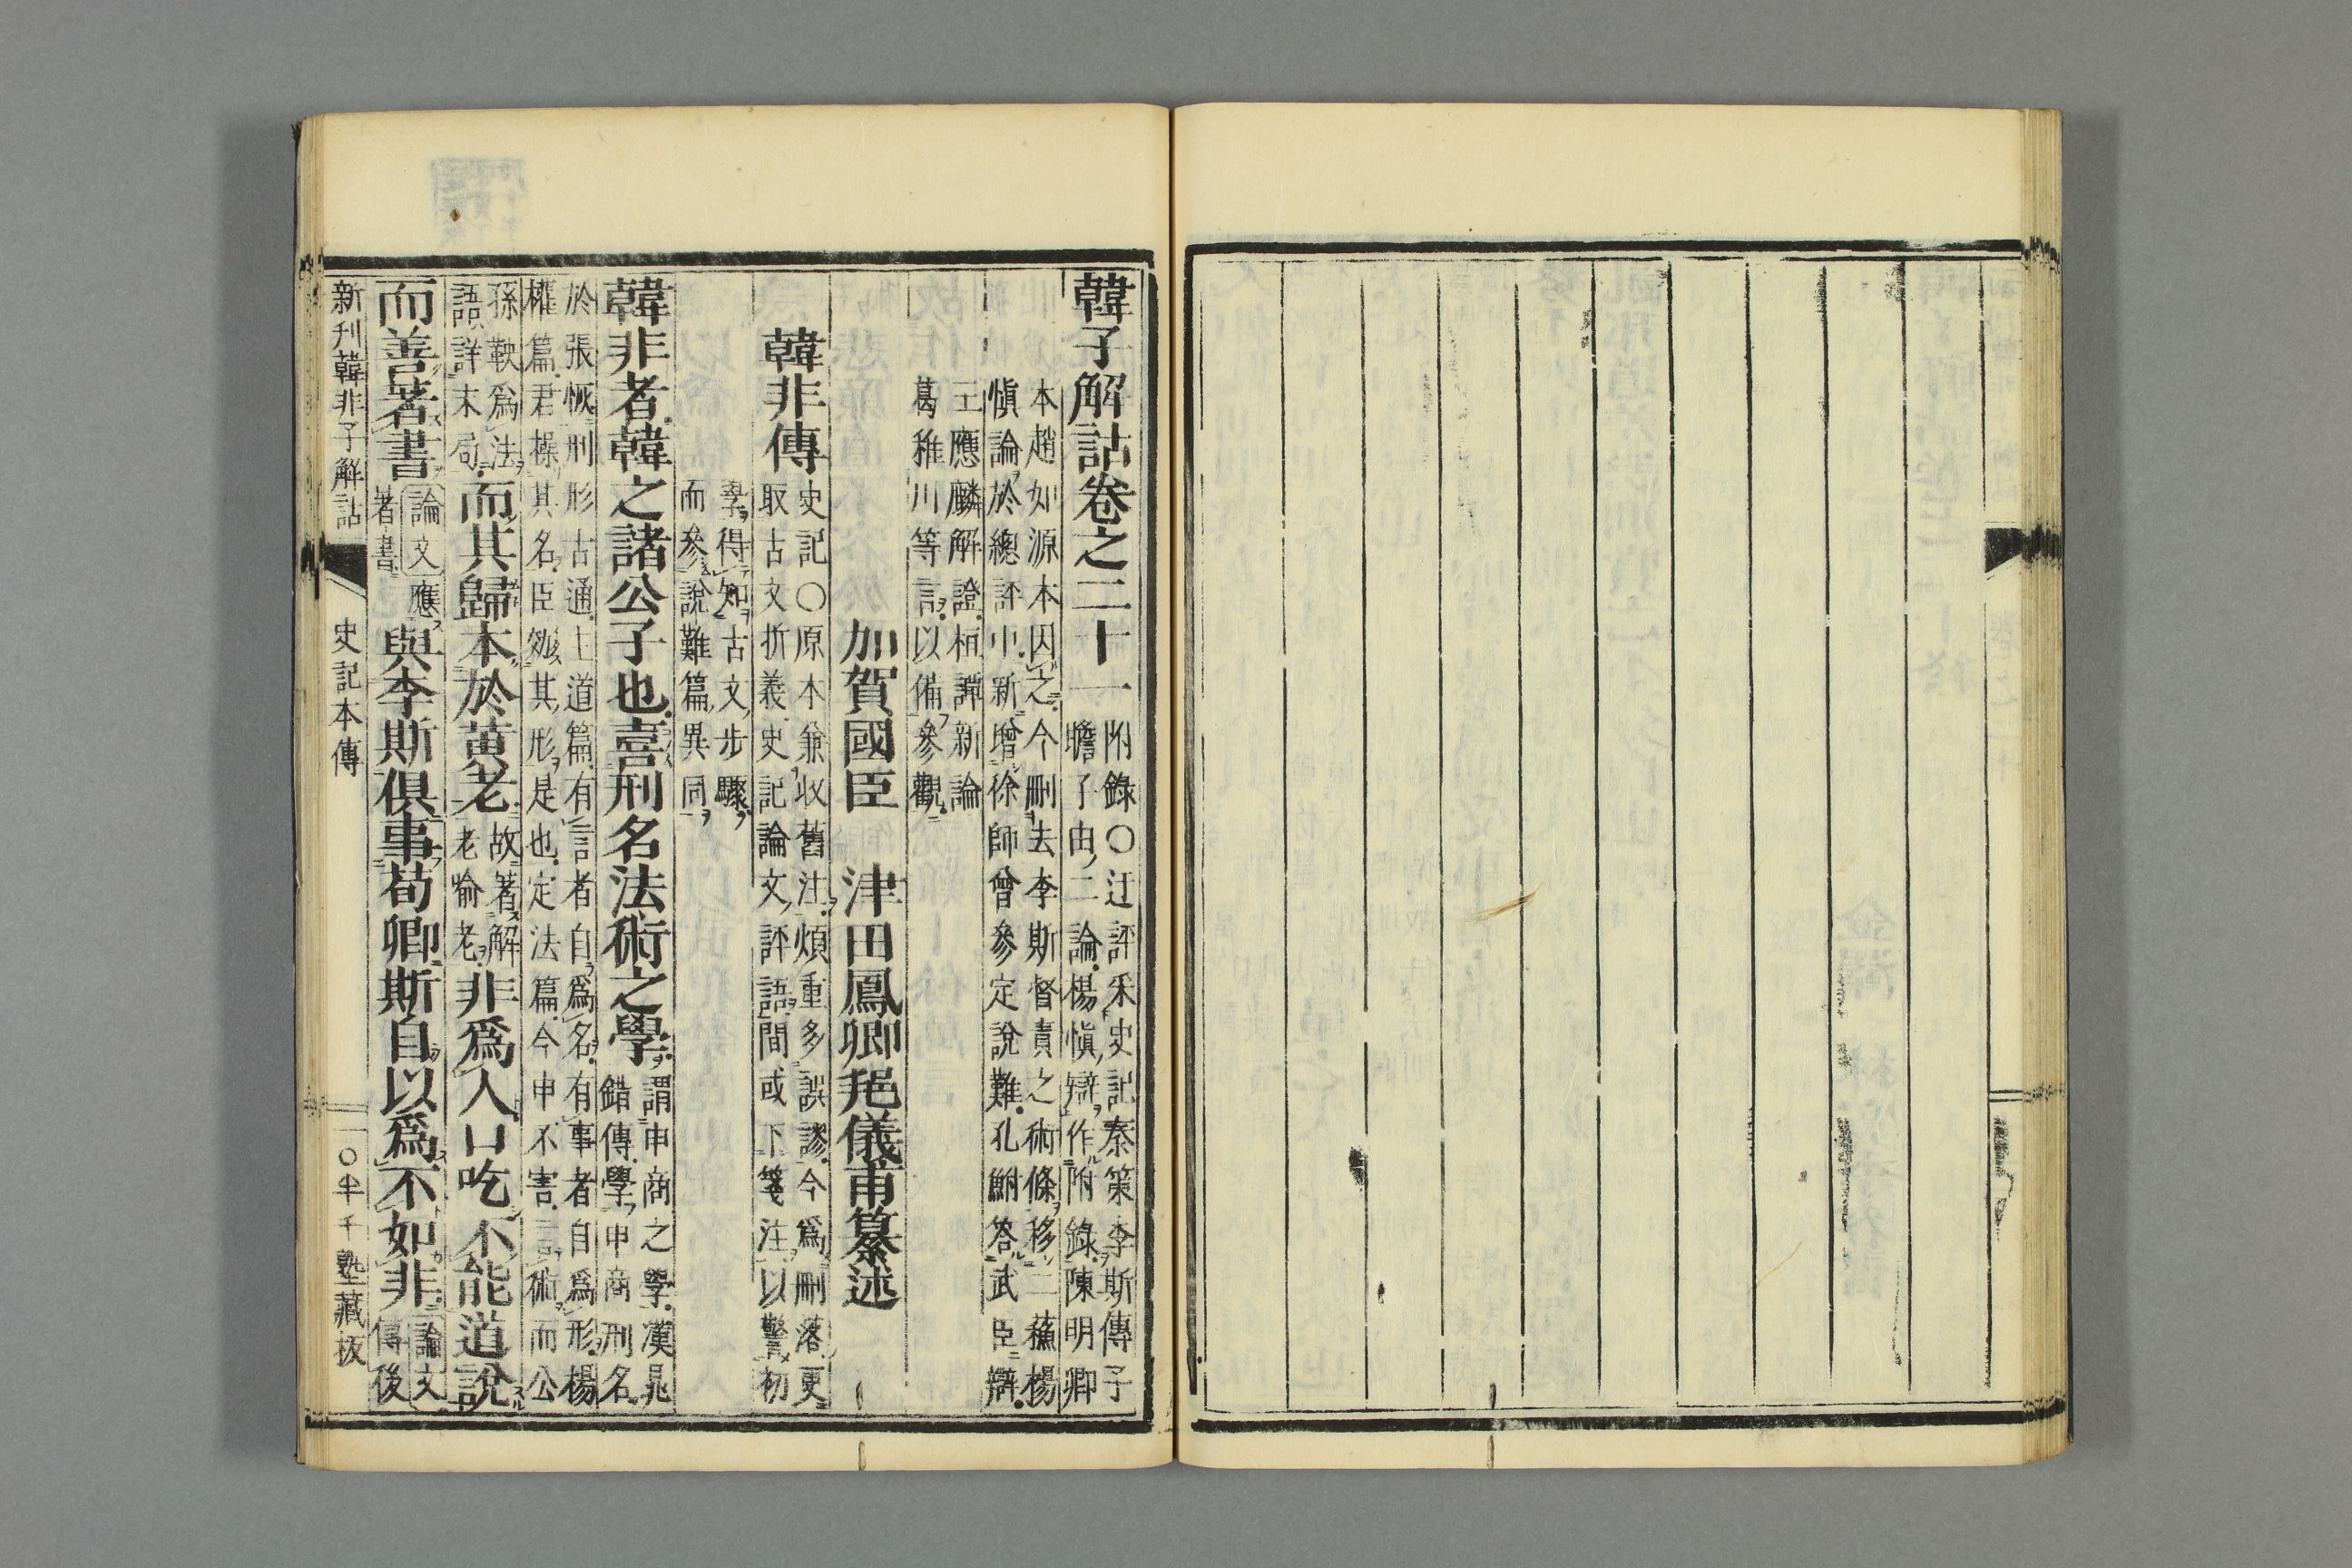 韓子解詁卷之二十一
附錄〇迂評釆史記秦策李斯傳子
瞻子由二論楊愼辯作附錄陳明卿
本趙如源本因之今刪去李斯督責之術條移二蘇楊
愼論於總評中新增徐師曾參定說難孔鮒答武臣辯
王應麟解證桓譚新論
葛稚川等言以備參觀
加賀國臣　津田鳳卿邦儀甫纂述
韓非傳
史記〇原本兼收舊注煩重多誤謬今爲刪落更
取古文折義史記論文評語間或下箋注以擊初
學得知古文步驟
而參說難篇異同
韓非者韓之諸公子也喜刑名法術之學
謂申商之學漢鼂
錯傳學申商刑名
於張恢刑形古通主道篇有言者自爲名有事者自爲形楊
權篇君操其名臣效其形是也定法篇今申不害言術而公
孫鞅爲法
語詳末局
而其歸本於黃老
故著解
老喻老
非爲人口吃不能道說
而善著書
論文應
著書
與李斯俱事荀卿斯自以爲不如非
論文
傳後
新刊韓非子解詁
史記本傳
一
〇半千塾藏板